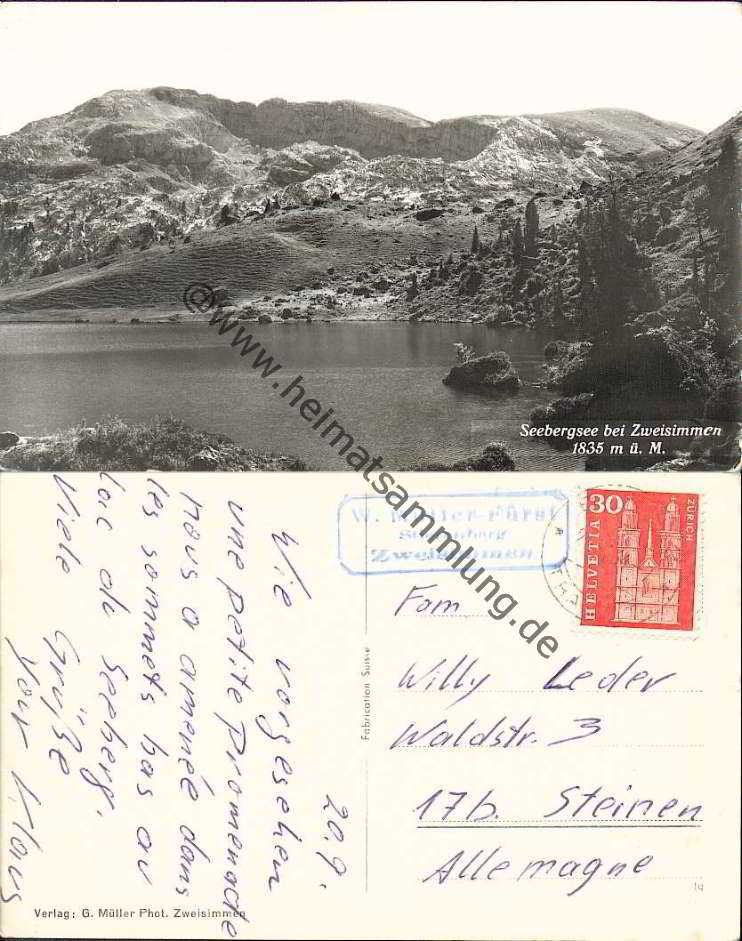 Seebergsee bei Zweisimmen
1835 m ü. M.
@www.heimatsammlung.de
W. Müller-Fürst
Zweisimmen
30
HELVETIA
ZÜRICH
20.9.
Wie vorgesehen
une petite promenade
nous a amenée dans
les sommets bas au
lac de Seeberg.
Viele Grüße
Klaus
Fabrication Suisse
Fam
Willy Leder
Waldstr. 3
17b. Steinen
Allemagne
Verlag: G. Müller Phot. Zweisimmen